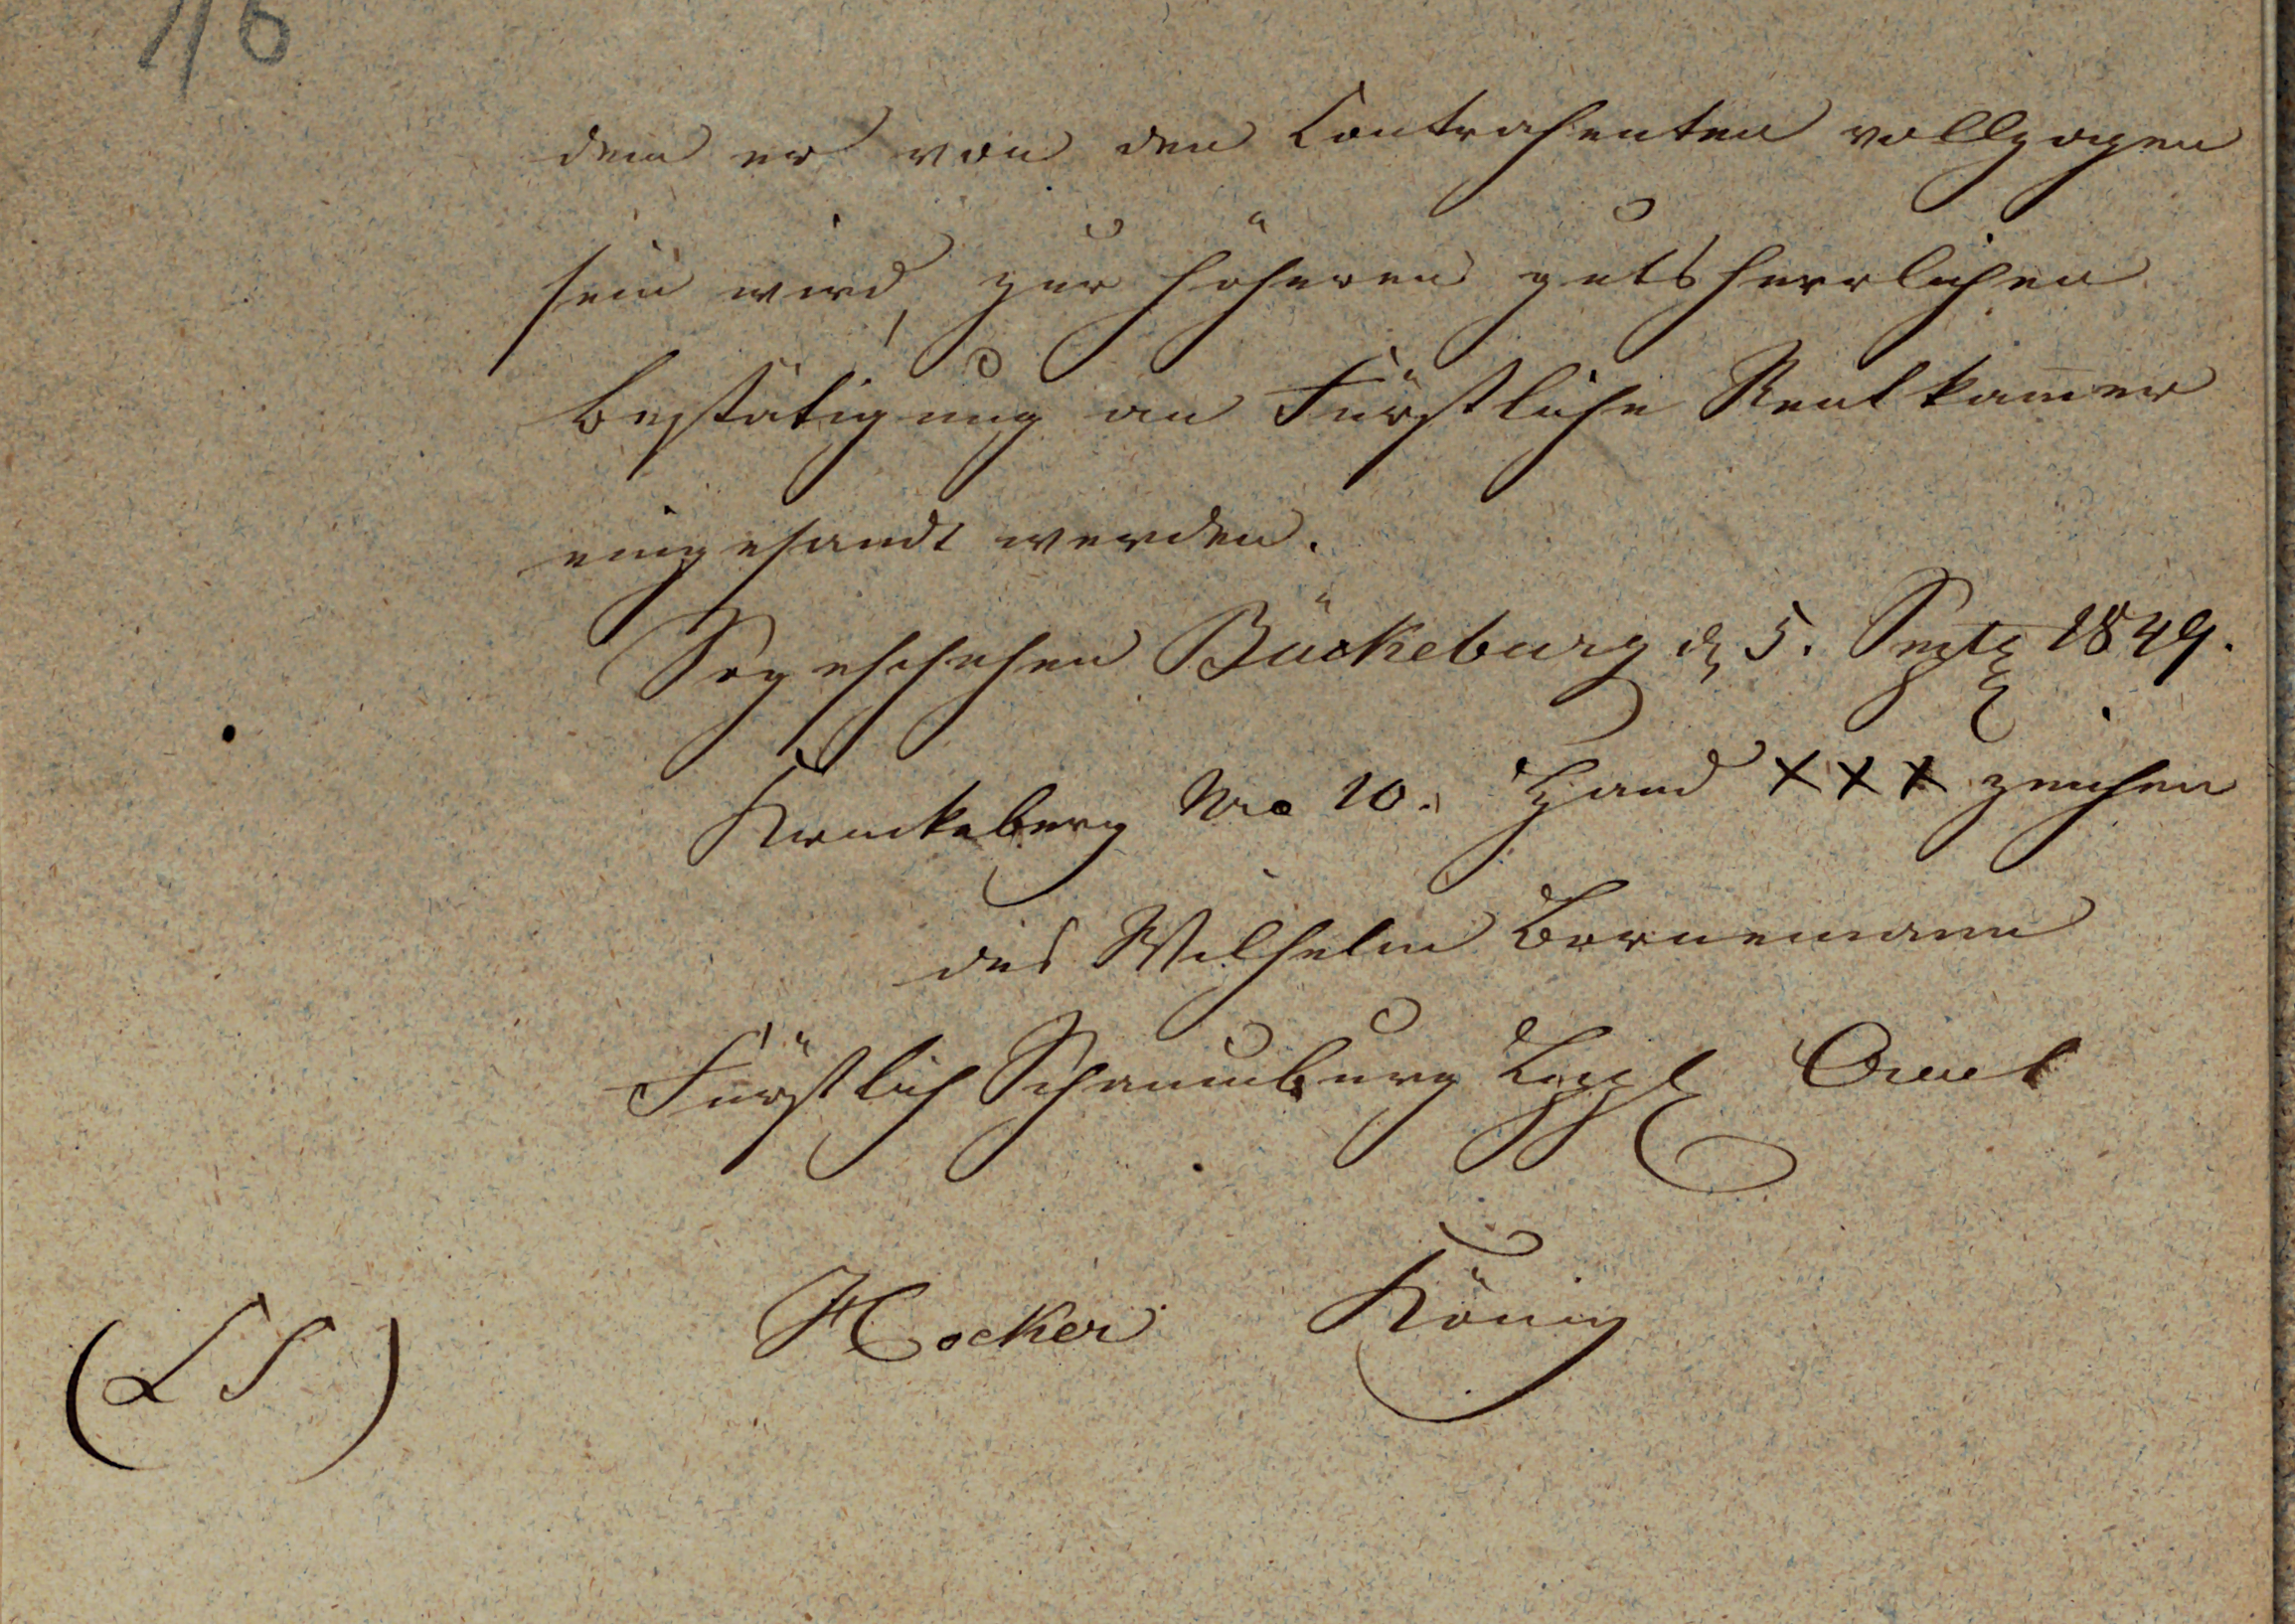 116
dem er von den Contrahenten vollzogen
sein wird, zur höheren gutsherrlichen
Bestätigung an Fürstliche Rentkam̄er
eingesandt werden.
So geschehen Bückeburg d. 5. Septbr 1849.
Kruckeberg Nro 10. Hand XXX zeichen
des Wilhelm Bornemann
Fürstlich Schaumburg Lippl Amt
Hocker König
(LS)